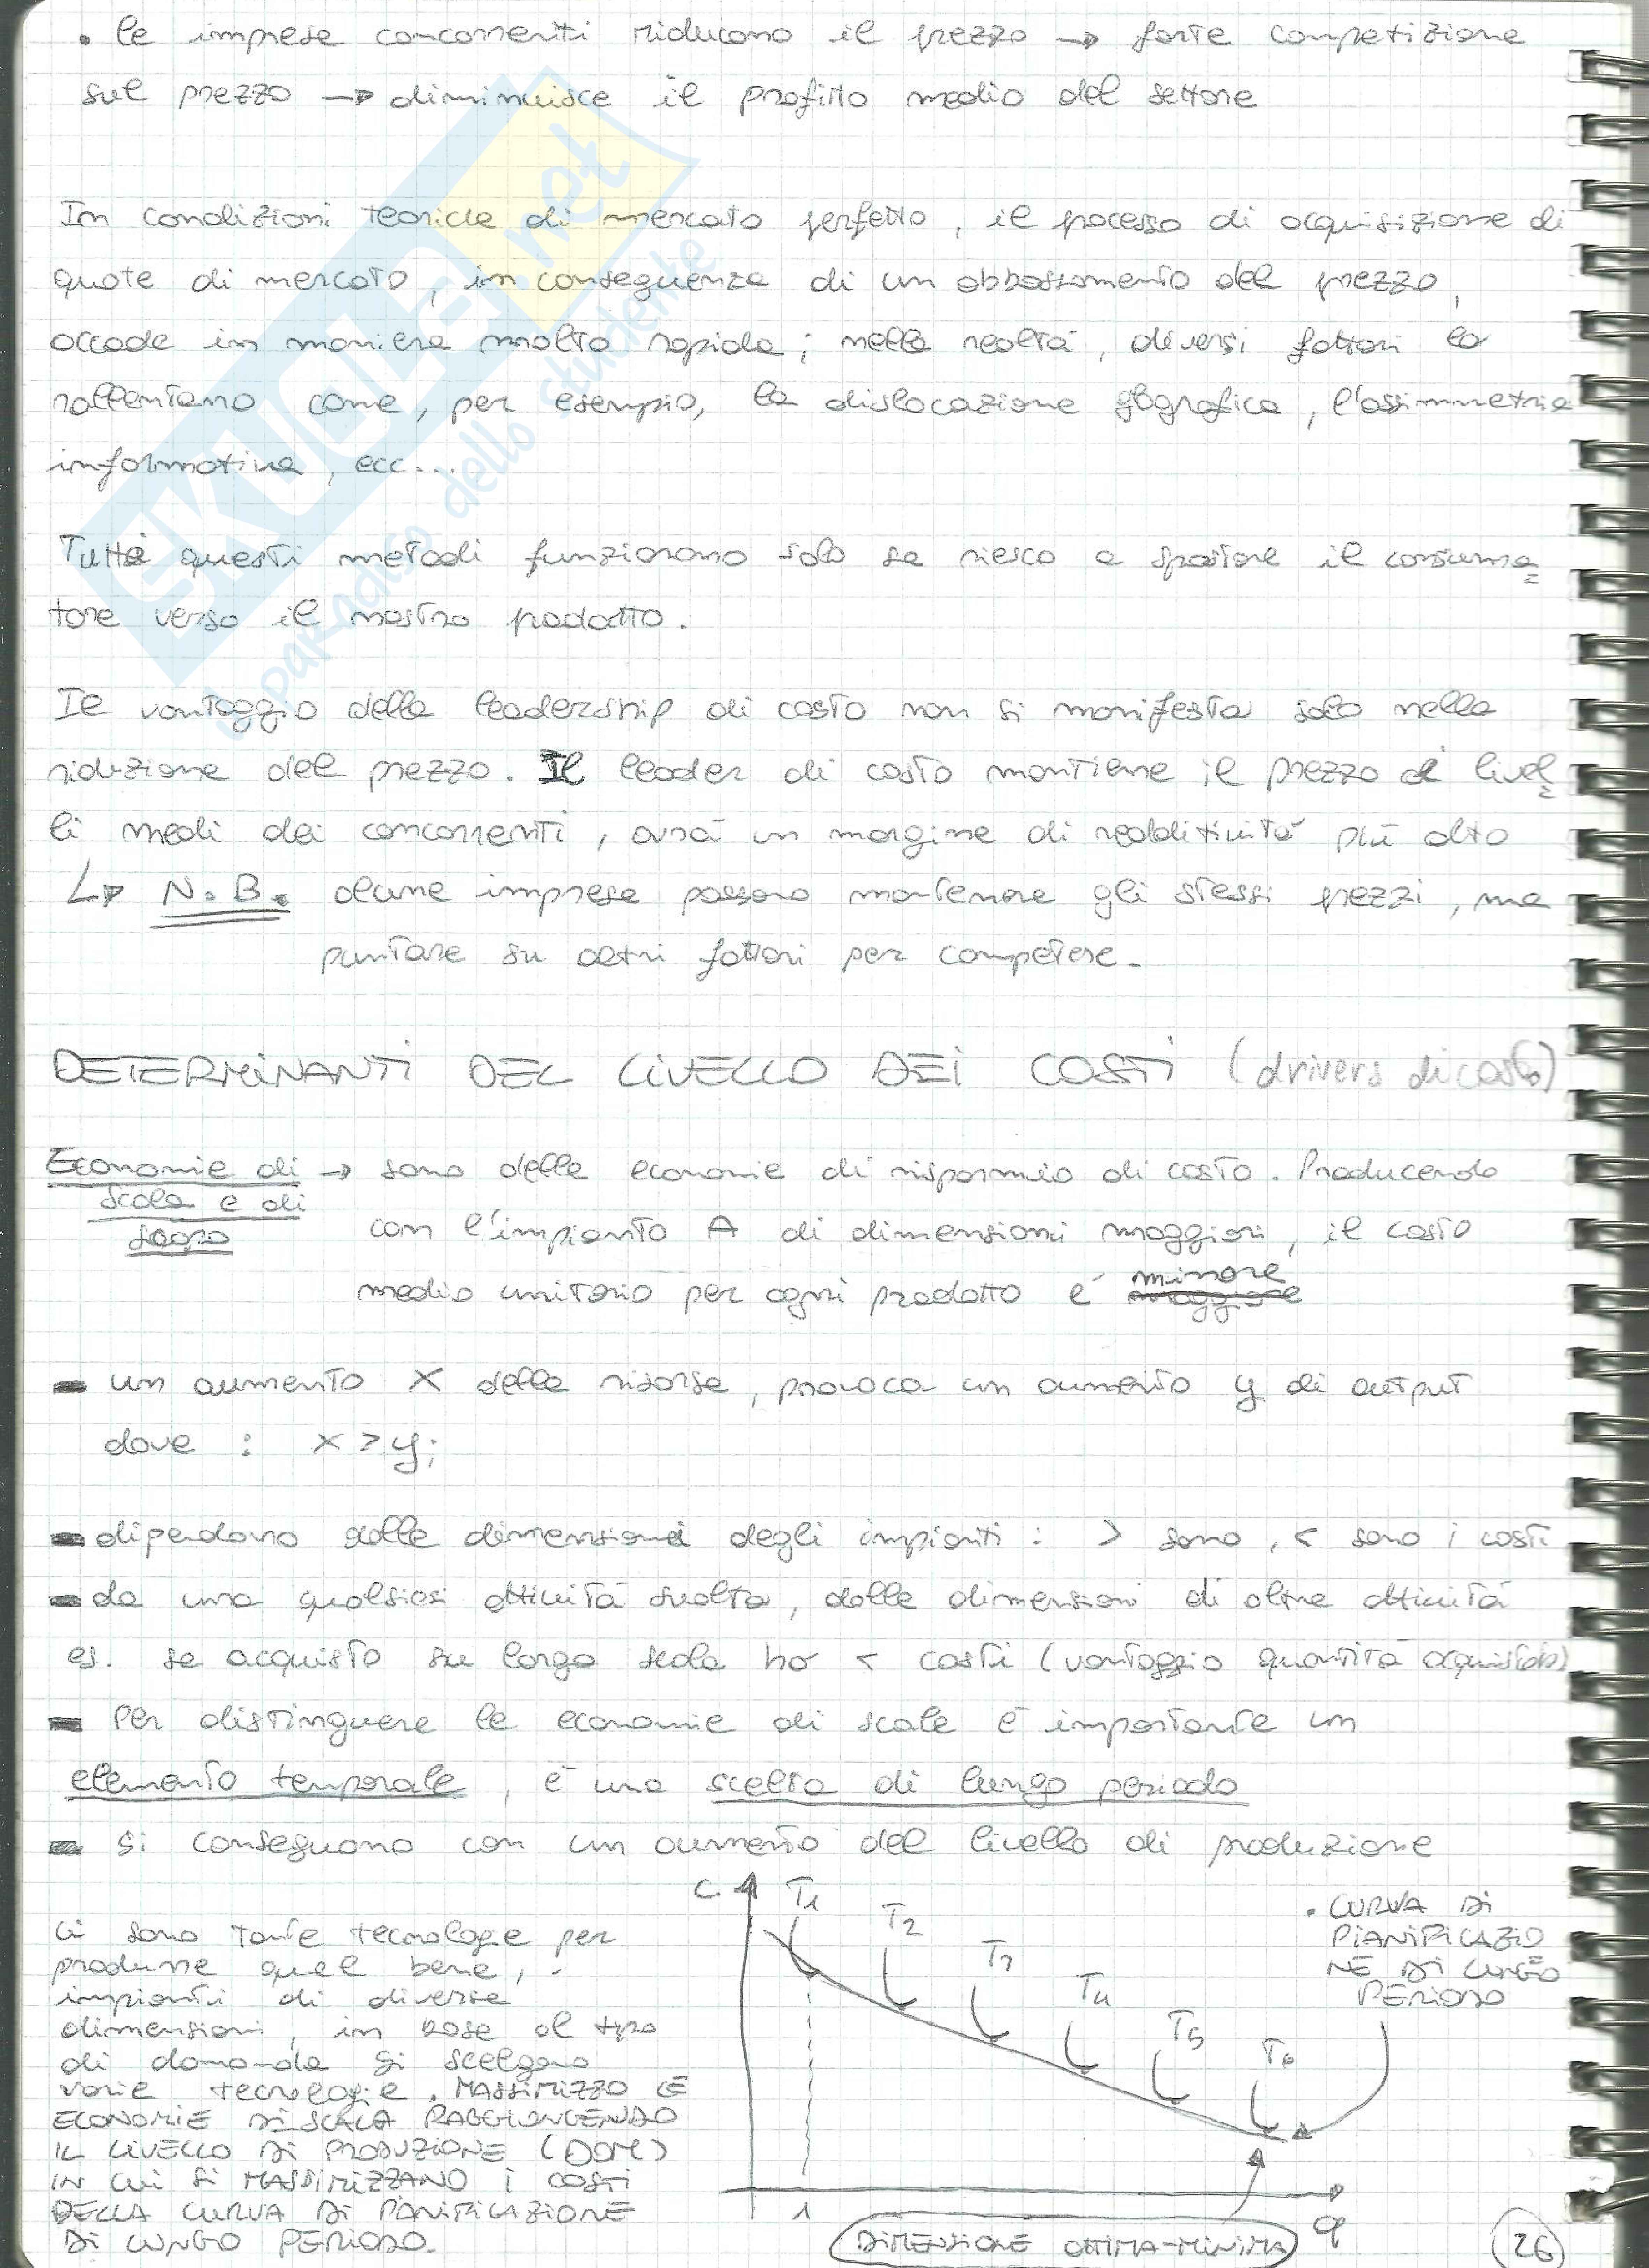 • le imprese concorrenti riducono il prezzo → forte competizione
sul prezzo → diminuisce il profitto medio del settore
In condizioni teoriche di mercato perfetto, il processo di acquisizione di
quote di mercato, in conseguenza di un abbassamento del prezzo,
accade in maniera molto rapida; nella realtà, diversi fattori lo
rallentano come, per esempio, la dislocazione geografica, l'assimmetria
informativa, ecc...
Tutti questi metodi funzionano solo se riesco a spostare il consuma=
tore verso il nostro prodotto.
Il vantaggio della leadership di costo non si manifesta solo nella
riduzione del prezzo. Il leader di costo mantiene il prezzo ai livel=
li medi dei concorrenti, avrà un margine di redditività più alto
↳ N.B. alcune imprese possono mantenere gli stessi prezzi, ma
puntare su altri fattori per competere.
DETERMINANTI DEL LIVELLO DEI COSTI (drivers di costo)
Economie di → sono delle economie di risparmio di costo. Producendo
scala e di
scopo
con l'impianto A di dimensioni maggiori, il costo
minore
medio unitario per ogni prodotto è maggiore
- un aumento X delle risorse, provoca un aumento y di output
dove : x > y;
- dipendono dalle dimensioni degli impianti : > sono, < sono i costi
- da una qualsiasi attività svolta, dalle dimensioni di altre attività
es. se acquisto su larga scala ho < costi (vantaggio quantità acquistata)
- Per distinguere le economie di scala è importante un
elemento temporale, è una scelta di lungo periodo
- si conseguono con un aumento del livello di produzione
Ci sono tante tecnologie per
produrre quel bene,
impianti di diverse
dimensioni, in base al tipo
di domanda si scelgono
varie tecnologie. MASSIMIZZO LE
ECONOMIE DI SCALA RAGGIUNGENDO
IL LIVELLO DI PRODUZIONE (DOM)
IN CUI SI MASSIMIZZANO I COSTI
DELLA CURVA DI PIANIFICAZIONE
DI LUNGO PERIODO.
C
T1
T2
T3
T4
T5
T6
• CURVA DI
PIANIFICAZIO
NE DI LUNGO
PERIODO
1
q
DIMENSIONE OTTIMA-MINIMA
26
SKUOLA.net
il paradiso dello studente